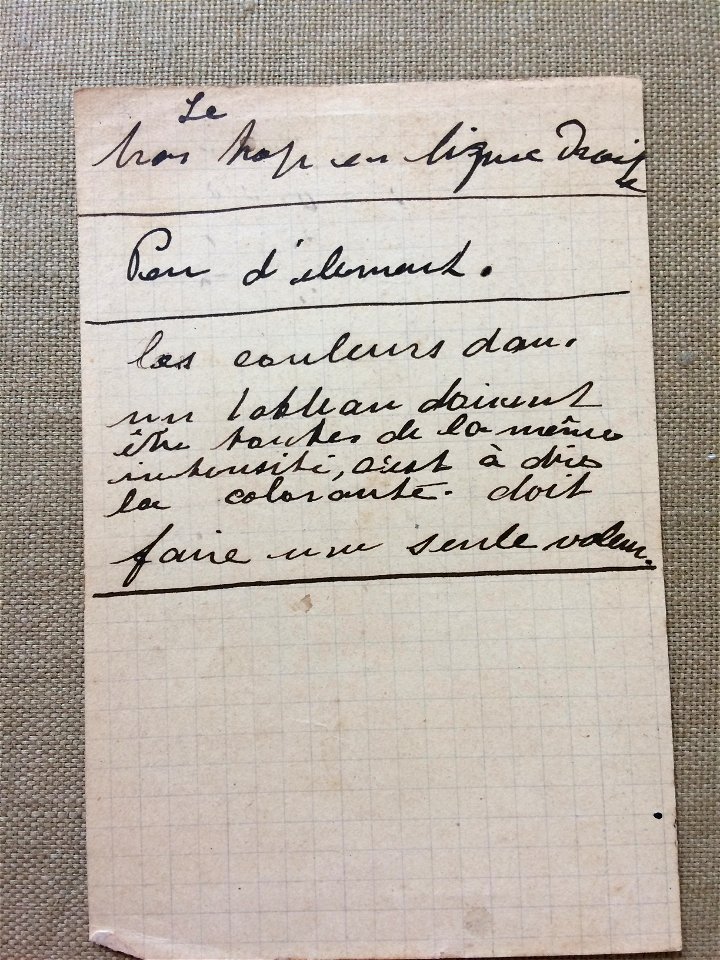 Le
bras trop en ligne droite
Peu d'element.
les couleurs dan.
un tableau doivent
être toutes de la même
intensité, c'est à dire
la colorante. doit
faire une seule valeur.